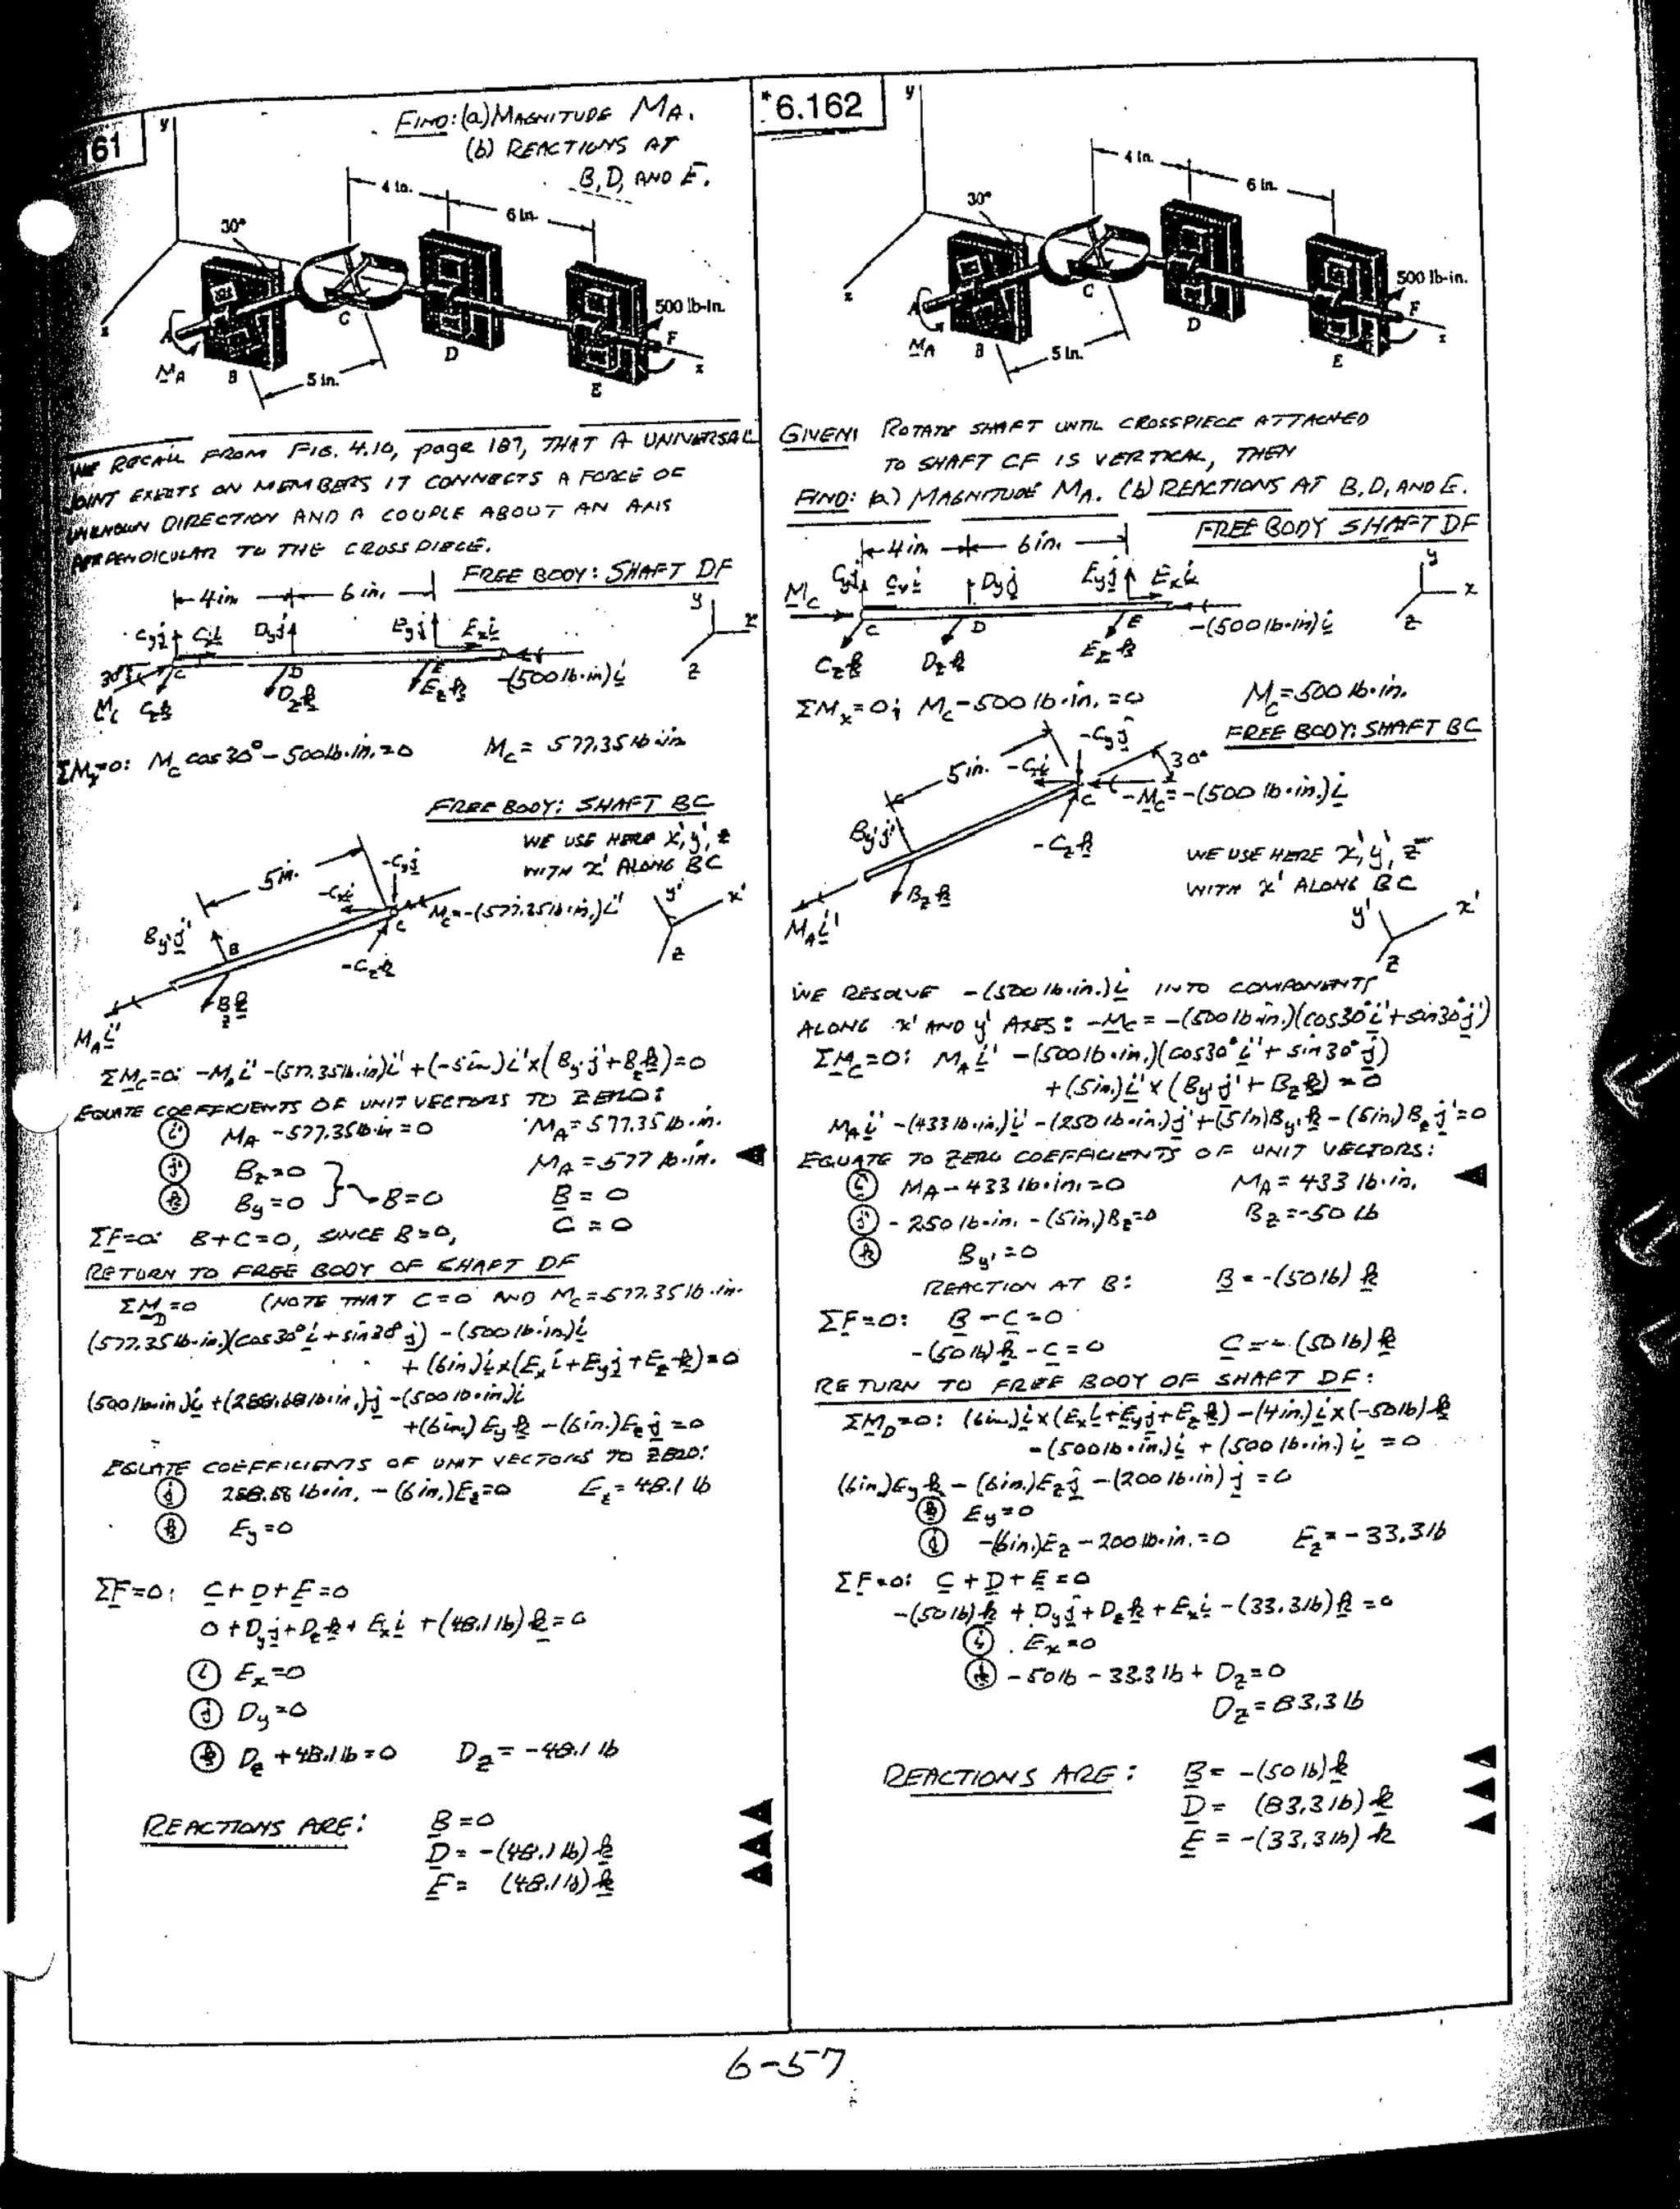 61
FIND: (a) MAGNITUDE MA.
(b) REACTIONS AT
B, D, AND E.
y
4 in.
6 in.
30°
500 lb-in.
A
MA
B
5 in.
C
D
E
F
x
z
WE RECALL FROM FIG. 4.10, page 187, THAT A UNIVERSAL
JOINT EXERTS ON MEMBERS IT CONNECTS A FORCE OF
UNKNOWN DIRECTION AND A COUPLE ABOUT AN AXIS
PERPENDICULAR TO THE CROSSPIECE.
FREE BODY: SHAFT DF
4in 6 in.
Cyj Cxi Dyj Eyj Exi
30° C D E -(500 lb·in)i
Mc Czk Dzk Ezk
y x z
ΣMx=0: Mc cos 30° - 500 lb·in. = 0 Mc = 577.35 lb·in
FREE BODY: SHAFT BC
WE USE HERE x', y', z
WITH x' ALONG BC
5in.
-Cyj
-Cxi
Mc = -(577.35 lb·in.)i'
By'j' B C
-Czk
Bzk
MAi'
y' x' z
ΣMc=0: -MAi' -(577.35 lb·in)i' +(-5in)i'×(By'j'+Bzk)=0
EQUATE COEFFICIENTS OF UNIT VECTORS TO ZERO:
(i) MA - 577.35 lb·in = 0 MA = 577.35 lb·in.
(j) Bz=0 MA = 577 lb·in.
(k) By=0 B=0 B = 0
C = 0
ΣF=0: B+C=0, SINCE B=0,
RETURN TO FREE BODY OF SHAFT DF
ΣMD=0 (NOTE THAT C=0 AND Mc=577.35 lb·in.
(577.35 lb·in.)(cos30°i+sin30°j) -(500 lb·in)i
+ (6in)i×(Exi+Eyj+Ezk)=0
(500 lb·in)i +(288.68 lb·in.)j -(500 lb·in)i
+(6in.)Eyk -(6in.)Ezj =0
EQUATE COEFFICIENTS OF UNIT VECTORS TO ZERO:
(j) 288.68 lb·in. -(6in.)Ez=0 Ez= 48.1 lb
(k) Ey=0
ΣF=0: C+D+E=0
0+Dyj+Dzk+Exi+(48.1 lb)k=0
(i) Ex=0
(j) Dy=0
(k) Dz+48.1 lb=0 Dz= -48.1 lb
REACTIONS ARE: B=0
D= -(48.1 lb)k
E= (48.1 lb)k
*6.162
y
4 in.
6 in.
30°
500 lb-in.
A
MA
B
5 in.
C
D
E
F
x
z
GIVEN: ROTATE SHAFT UNTIL CROSSPIECE ATTACHED
TO SHAFT CF IS VERTICAL, THEN
FIND: (a) MAGNITUDE MA. (b) REACTIONS AT B, D, AND E.
FREE BODY SHAFT DF
4in 6in.
Mc Cyj Cxi Dyj Eyj Exi
C D E -(500 lb·in)i
Czk Dzk Ezk
y x z
ΣMx=0; Mc-500 lb·in.=0 Mc=500 lb·in.
FREE BODY: SHAFT BC
5in.
-Cyj
-Cxi
30°
C -Mc=-(500 lb·in.)i
By'j'
-Czk
Bzk
MAi'
WE USE HERE x', y', z
WITH x' ALONG BC
y' x' z
WE RESOLVE -(500 lb·in.)i INTO COMPONENTS
ALONG x' AND y' AXES: -Mc=-(500 lb·in.)(cos30°i'+sin30°j')
ΣMc=0: MAi' -(500 lb·in.)(cos30°i'+sin30°j)
+(5in.)i'×(By'j'+Bzk)=0
MAi' -(433 lb·in.)i' -(250 lb·in.)j' +(5in)By'k -(5in.)Bzj'=0
EQUATE TO ZERO COEFFICIENTS OF UNIT VECTORS:
(i) MA-433 lb·in.=0 MA= 433 lb·in.
(j) -250 lb·in. -(5in.)Bz=0 Bz=-50 lb
(k) By'=0
REACTION AT B: B=-(50 lb)k
ΣF=0: B-C=0
-(50 lb)k-C=0 C=-(50 lb)k
RETURN TO FREE BODY OF SHAFT DF:
ΣMD=0: (6in.)i×(Exi+Eyj+Ezk)-(4in)i×(-50 lb)k
-(500 lb·in.)i+(500 lb·in.)i=0
(6in.)Eyk-(6in.)Ezj-(200 lb·in)j=0
(k) Ey=0
(j) -(6in.)Ez-200 lb·in.=0 Ez=-33.3 lb
ΣF=0: C+D+E=0
-(50 lb)k+Dyj+Dzk+Exi-(33.3 lb)k=0
(i) Ex=0
(k) -50 lb-33.3 lb+Dz=0
Dz=83.3 lb
REACTIONS ARE: B= -(50 lb)k
D= (83.3 lb)k
E= -(33.3 lb)k
6-57